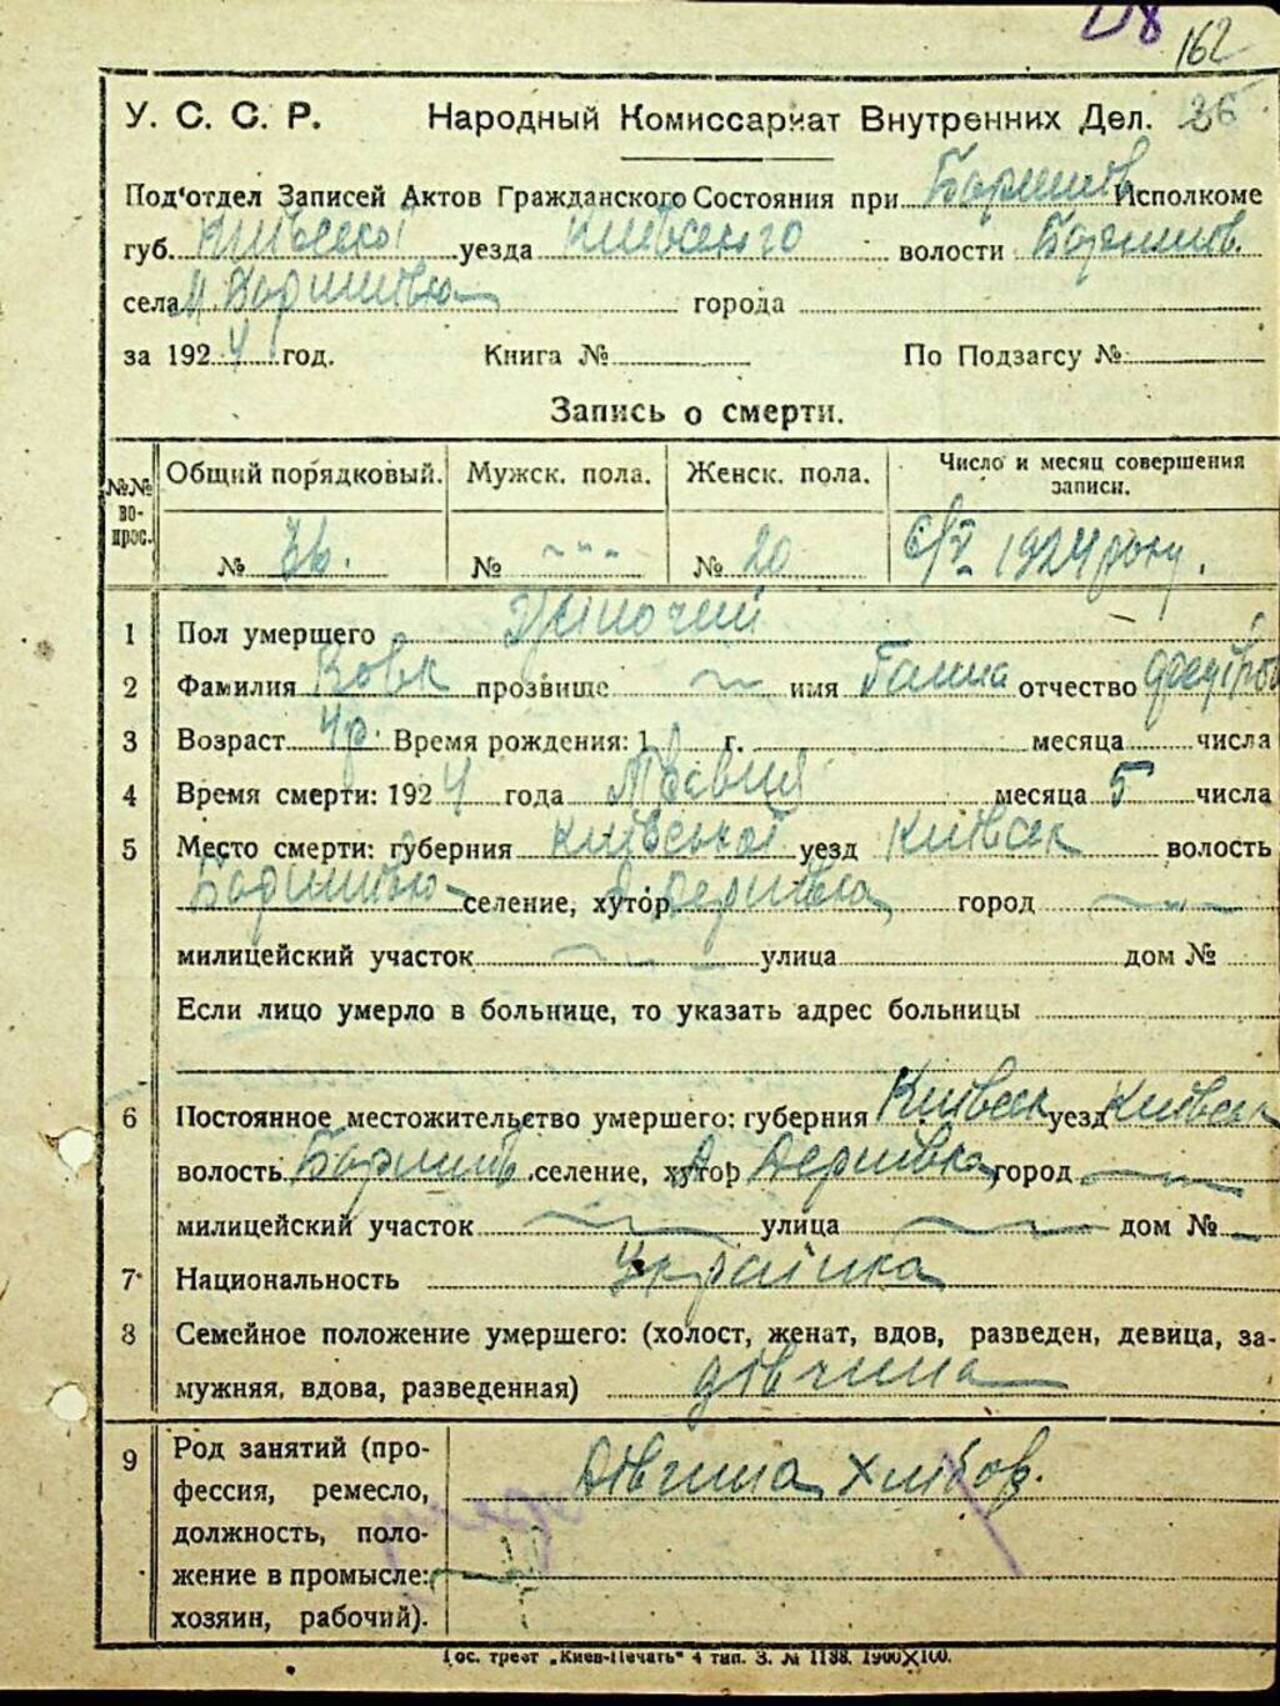 162
У. С. С. Р. Народный Комиссариат Внутренних Дел. 36
Под'отдел Записей Актов Гражданского Состояния при Исполкоме
губ. Київської уезда Київського волости
села города
за 1924 год. Книга № По Подзагсу №
Запись о смерти.
№№ вопрос. Общий порядковый. Мужск. пола. Женск. пола. Число и месяц совершения записи.
№ 36. № № 20 6/V 1924 року.
1 Пол умершего Жіночий
2 Фамилия Вовк прозвище имя Ганна отчество
3 Возраст 4 р. Время рождения: 1 г. месяца числа
4 Время смерти: 1924 года Травня месяца 5 числа
5 Место смерти: губерния Київської уезд Київськ волость
селение, хутор город
милицейский участок улица дом №
Если лицо умерло в больнице, то указать адрес больницы
6 Постоянное местожительство умершего: губерния Київськ уезд Київськ
волость селение, хутор город
милицейский участок улица дом №
7 Национальность Українка
8 Семейное положение умершего: (холост, женат, вдов, разведен, девица, за-
мужняя, вдова, разведенная) дівчина
9 Род занятий (про-
фессия, ремесло, дівчина хлібор.
должность, поло-
жение в промысле:
хозяин, рабочий).
Гос. трест „Киев-Печать" 4 тип. З. № 1138. 1900×100.